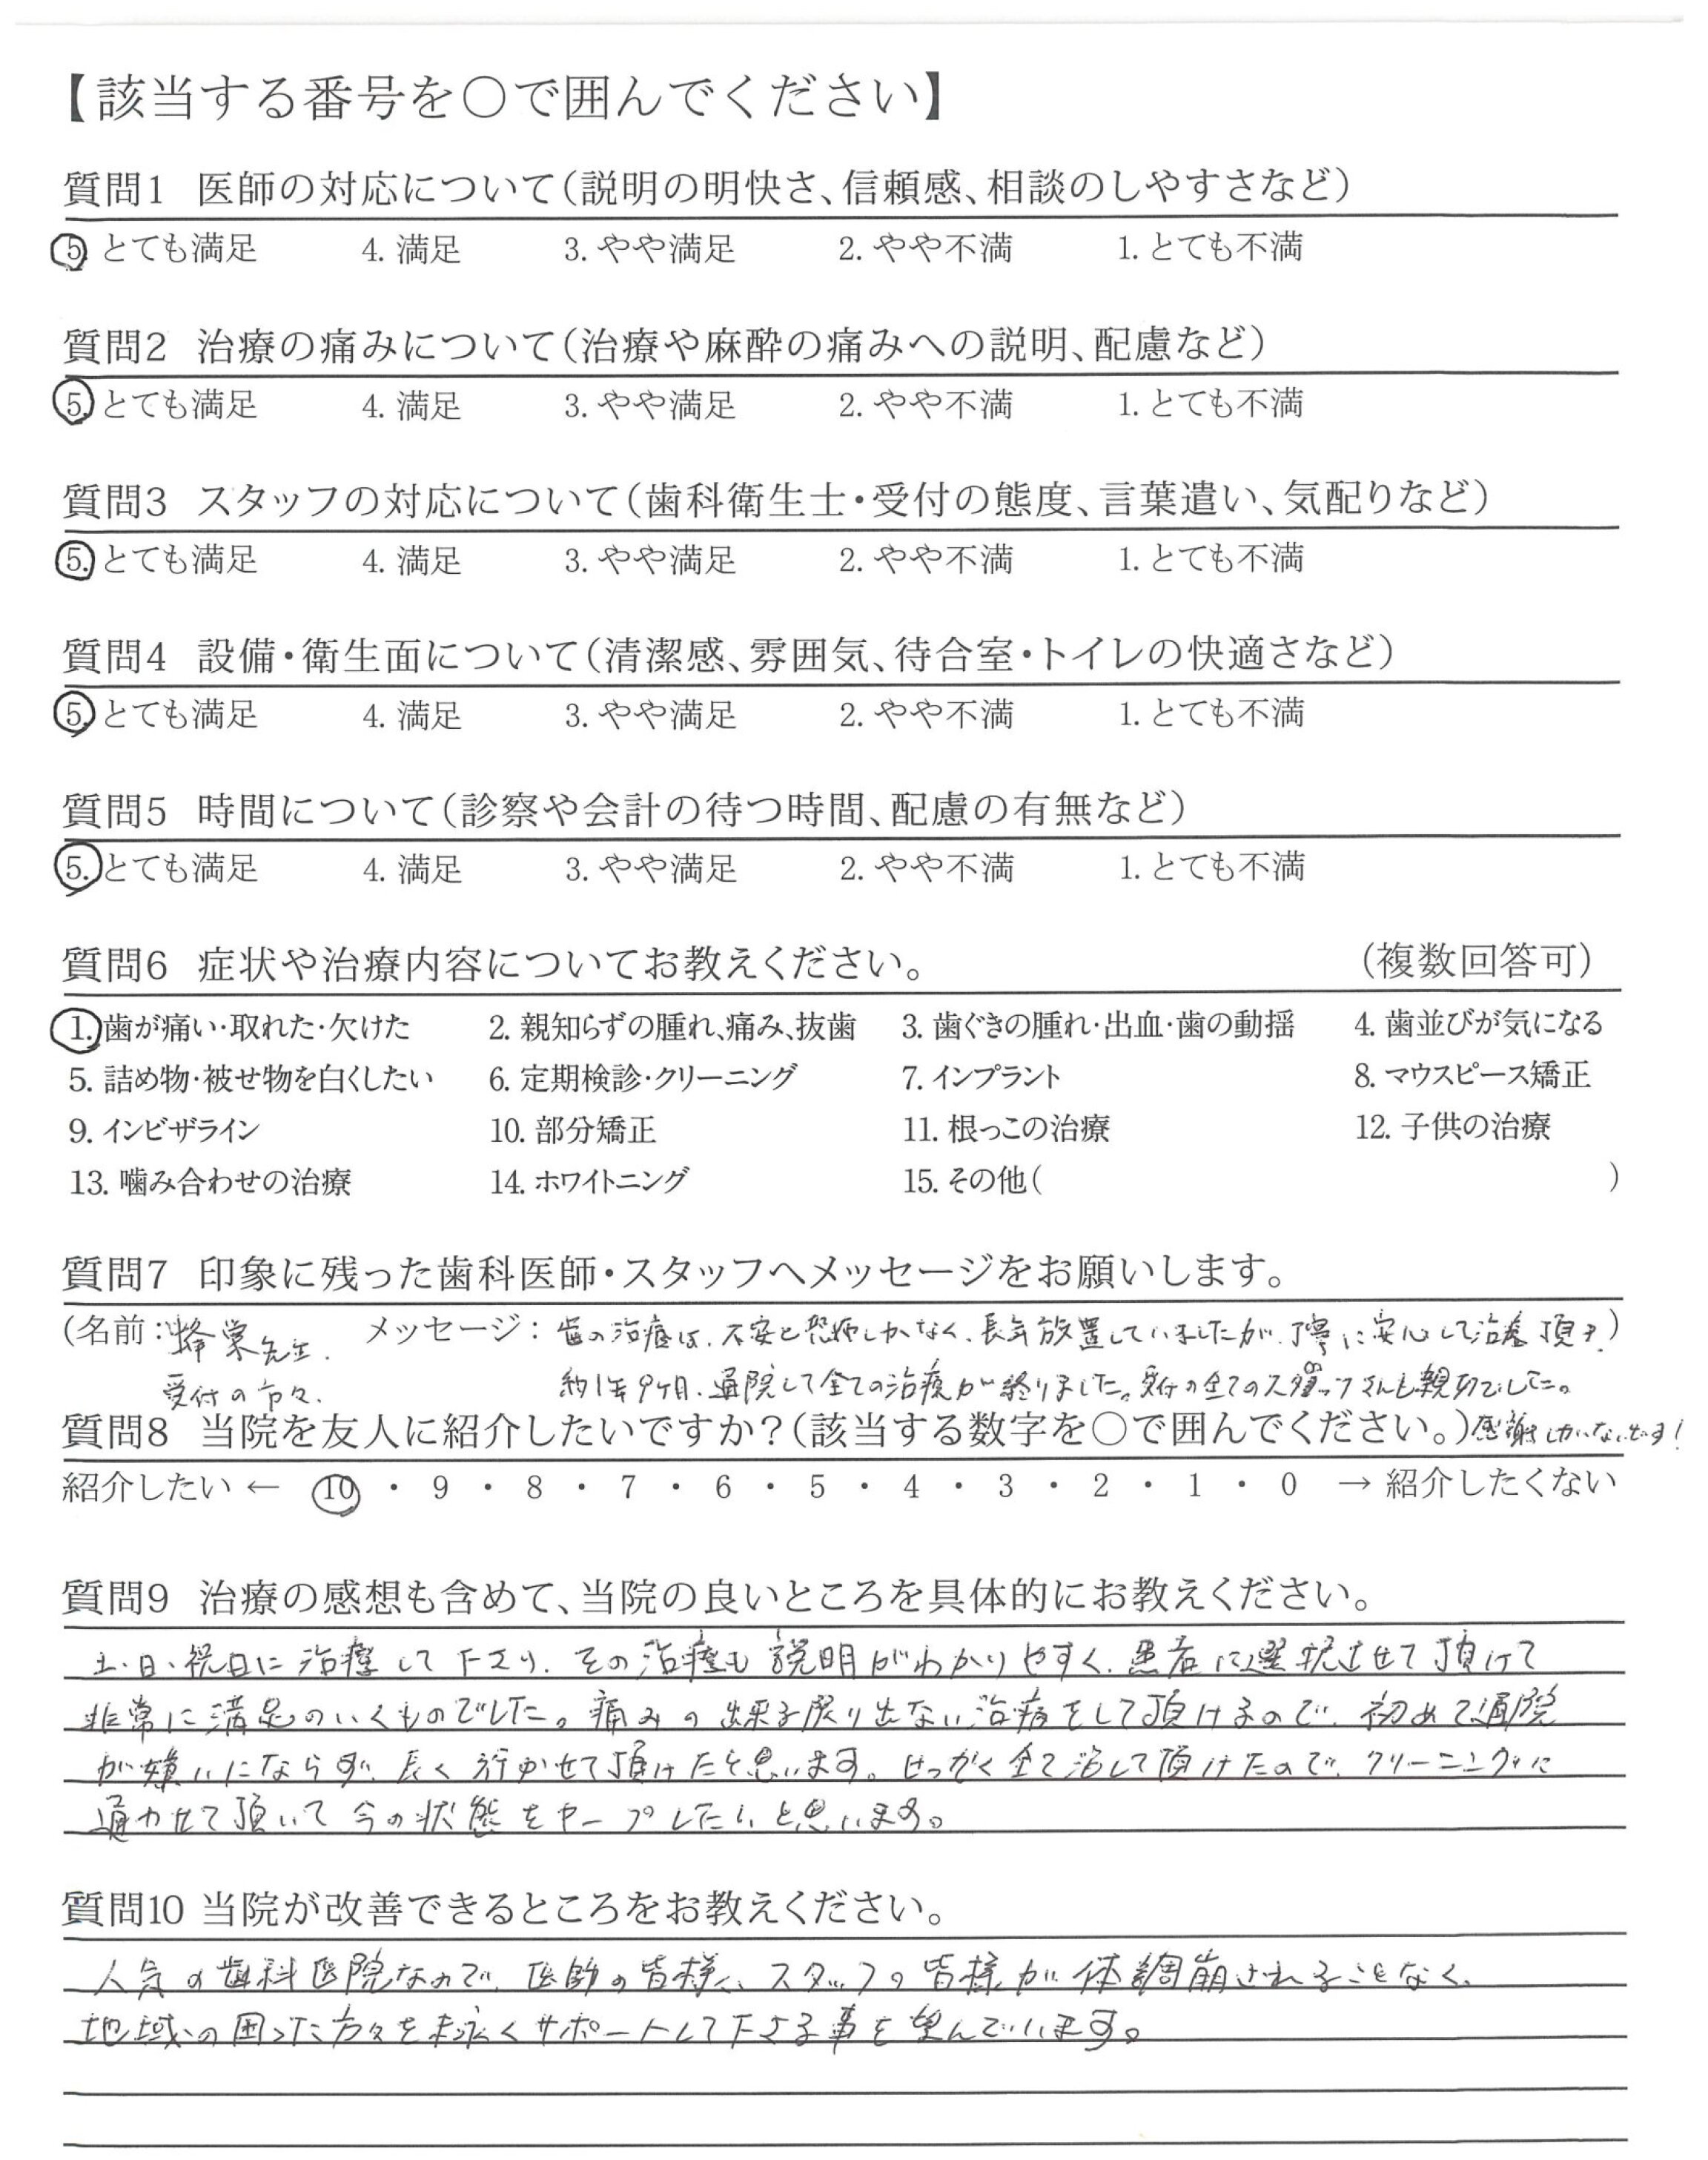 【該当する番号を○で囲んでください】
質問1 医師の対応について（説明の明快さ、信頼感、相談のしやすさなど）
5. とても満足 4. 満足 3. やや満足 2. やや不満 1. とても不満
質問2 治療の痛みについて（治療や麻酔の痛みへの説明、配慮など）
5. とても満足 4. 満足 3. やや満足 2. やや不満 1. とても不満
質問3 スタッフの対応について（歯科衛生士・受付の態度、言葉遣い、気配りなど）
5. とても満足 4. 満足 3. やや満足 2. やや不満 1. とても不満
質問4 設備・衛生面について（清潔感、雰囲気、待合室・トイレの快適さなど）
5. とても満足 4. 満足 3. やや満足 2. やや不満 1. とても不満
質問5 時間について（診察や会計の待つ時間、配慮の有無など）
5. とても満足 4. 満足 3. やや満足 2. やや不満 1. とても不満
質問6 症状や治療内容についてお教えください。 （複数回答可）
1. 歯が痛い・取れた・欠けた 2. 親知らずの腫れ、痛み、抜歯 3. 歯ぐきの腫れ・出血・歯の動揺 4. 歯並びが気になる
5. 詰め物・被せ物を白くしたい 6. 定期検診・クリーニング 7. インプラント 8. マウスピース矯正
9. インビザライン 10. 部分矯正 11. 根っこの治療 12. 子供の治療
13. 噛み合わせの治療 14. ホワイトニング 15. その他（ ）
質問7 印象に残った歯科医師・スタッフへメッセージをお願いします。
（名前： 先生. メッセージ：歯の治療は、不安と恐怖しかなく、長年放置していましたが、丁寧に安心して治療頂き）
受付の方々. 約1年9ヶ月、通院して全ての治療が終りました。受付の全てのスタッフさんも親切でした。
質問8 当院を友人に紹介したいですか？（該当する数字を○で囲んでください。）感謝しかないです！
紹介したい ← 10 ・ 9 ・ 8 ・ 7 ・ 6 ・ 5 ・ 4 ・ 3 ・ 2 ・ 1 ・ 0 → 紹介したくない
質問9 治療の感想も含めて、当院の良いところを具体的にお教えください。
土・日・祝日に治療して下さり、その治療も説明がわかりやすく、患者に選択させて頂けて
非常に満足のいくものでした。痛みの出来る限り出ない治療をして頂けるので、初めて通院
が嫌いにならず、長く行かせて頂けたと思います。せっかく全て治して頂けたので、クリーニングに
通わせて頂いて今の状態をキープしたいと思います。
質問10 当院が改善できるところをお教えください。
人気の歯科医院なので、医師の皆様、スタッフの皆様が体調崩されることなく、
地域の困った方々を末永くサポートして下さる事を望んでいます。